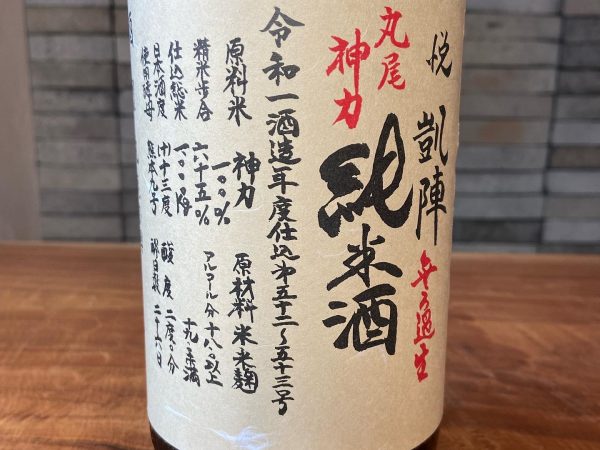 悦 凱陣 無ろ過生
丸尾
神力
純米酒
令和一酒造年度仕込第五十二～五十三号
原料米 神力 一〇〇% 原材料 米 米麹
精米歩合 六十五% アルコール分 十八%以上
仕込総米 一〇〇〇kg
日本酒度 (+)十三度 酸度 二度〇分
使用酵母 熊本九号 醪日数 二十六日